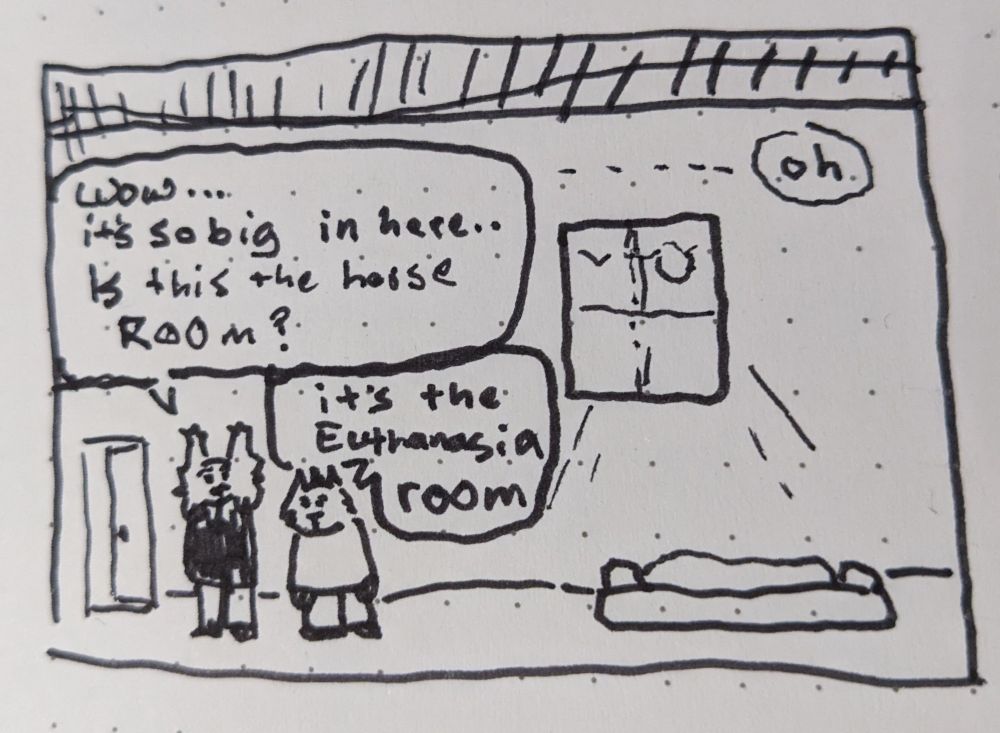 wow...
it's so big in here..
Is this the horse
ROOM?
it's the
Euthanasia
room
oh